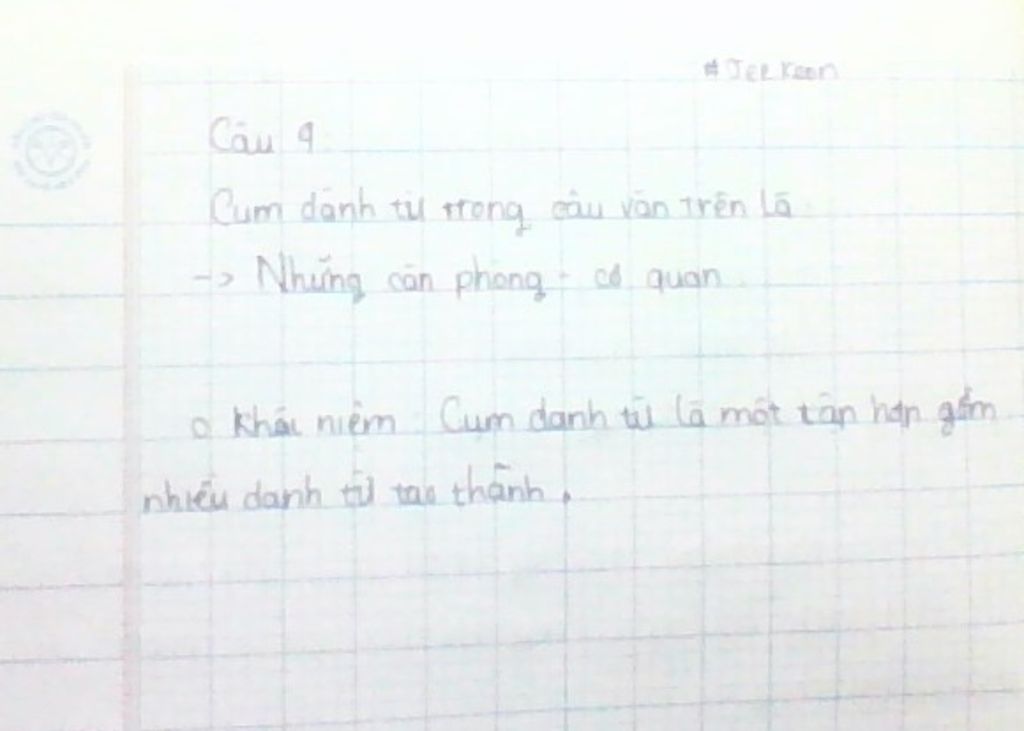 #Jee Koon
Câu 9
Cụm danh từ trong câu văn trên là
-> Những căn phòng - cơ quan.
o Khái niệm Cụm danh từ là một tập hợp gồm
nhiều danh từ tạo thành.